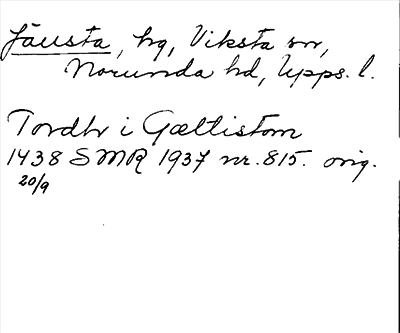 Jäusta, by, Viksta sn,
Norunda hd, Upps. l.
Tordhr i Gæltistom
1438 SMR 1937 nr. 815. orig.
20/9